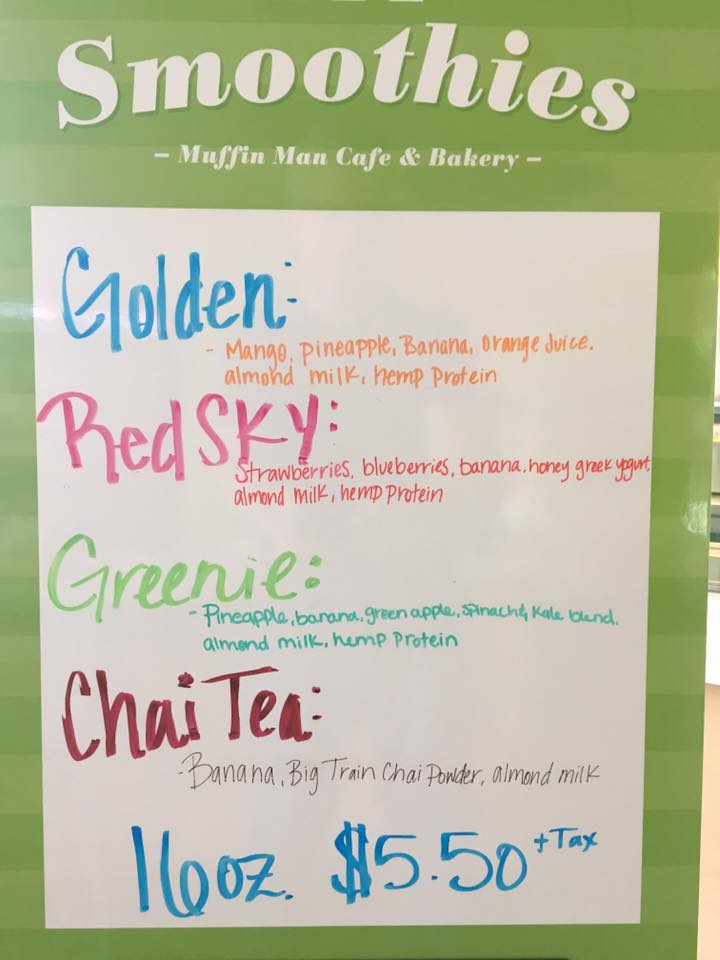 Smoothies
– Muffin Man Cafe & Bakery –
Golden:
- Mango, pineapple, Banana, orange Juice.
almond milk, hemp Protein
Red SKY:
Strawberries, blueberries, banana, honey greek yogurt,
almond milk, hemp Protein
Greenie:
- Pineapple, banana, green apple, spinach & Kale blend,
almond milk, hemp Protein
Chai Tea:
- Banana, Big Train Chai Powder, almond milk
16 oz. $5.50 + Tax